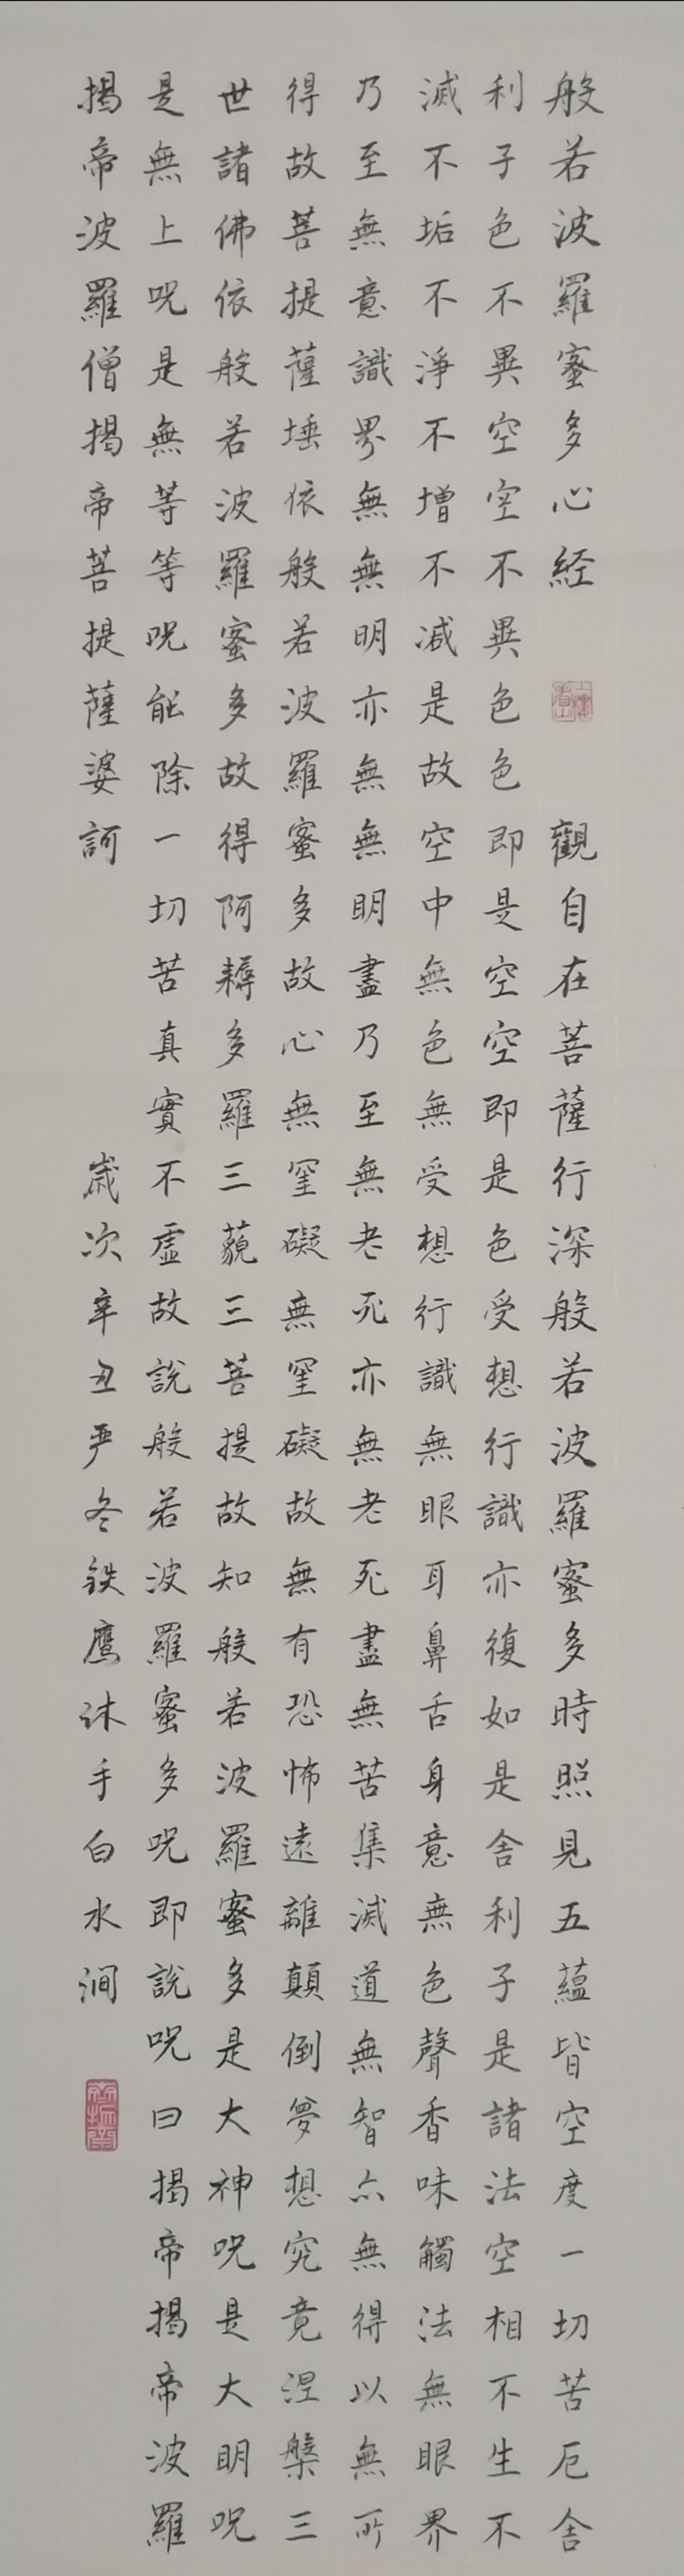 般若波羅蜜多心経 觀自在菩薩行深般若波羅蜜多時照見五蘊皆空度一切苦厄舍
利子色不異空空不異色色即是空空即是色受想行識亦復如是舍利子是諸法空相不生不
滅不垢不淨不增不减是故空中無色無受想行識無眼耳鼻舌身意無色聲香味觸法無眼界
乃至無意識界無無明亦無無明盡乃至無老死亦無老死盡無苦集滅道無智亦無得以無所
得故菩提薩埵依般若波羅蜜多故心無罣礙無罣礙故無有恐怖遠離顛倒夢想究竟涅槃三
世諸佛依般若波羅蜜多故得阿耨多羅三藐三菩提故知般若波羅蜜多是大神呪是大明呪
是無上呪是無等等呪能除一切苦真實不虛故說般若波羅蜜多呪即說呪曰揭帝揭帝波羅
揭帝波羅僧揭帝菩提薩婆訶 歲次辛丑严冬铁鹰沐手白水涧